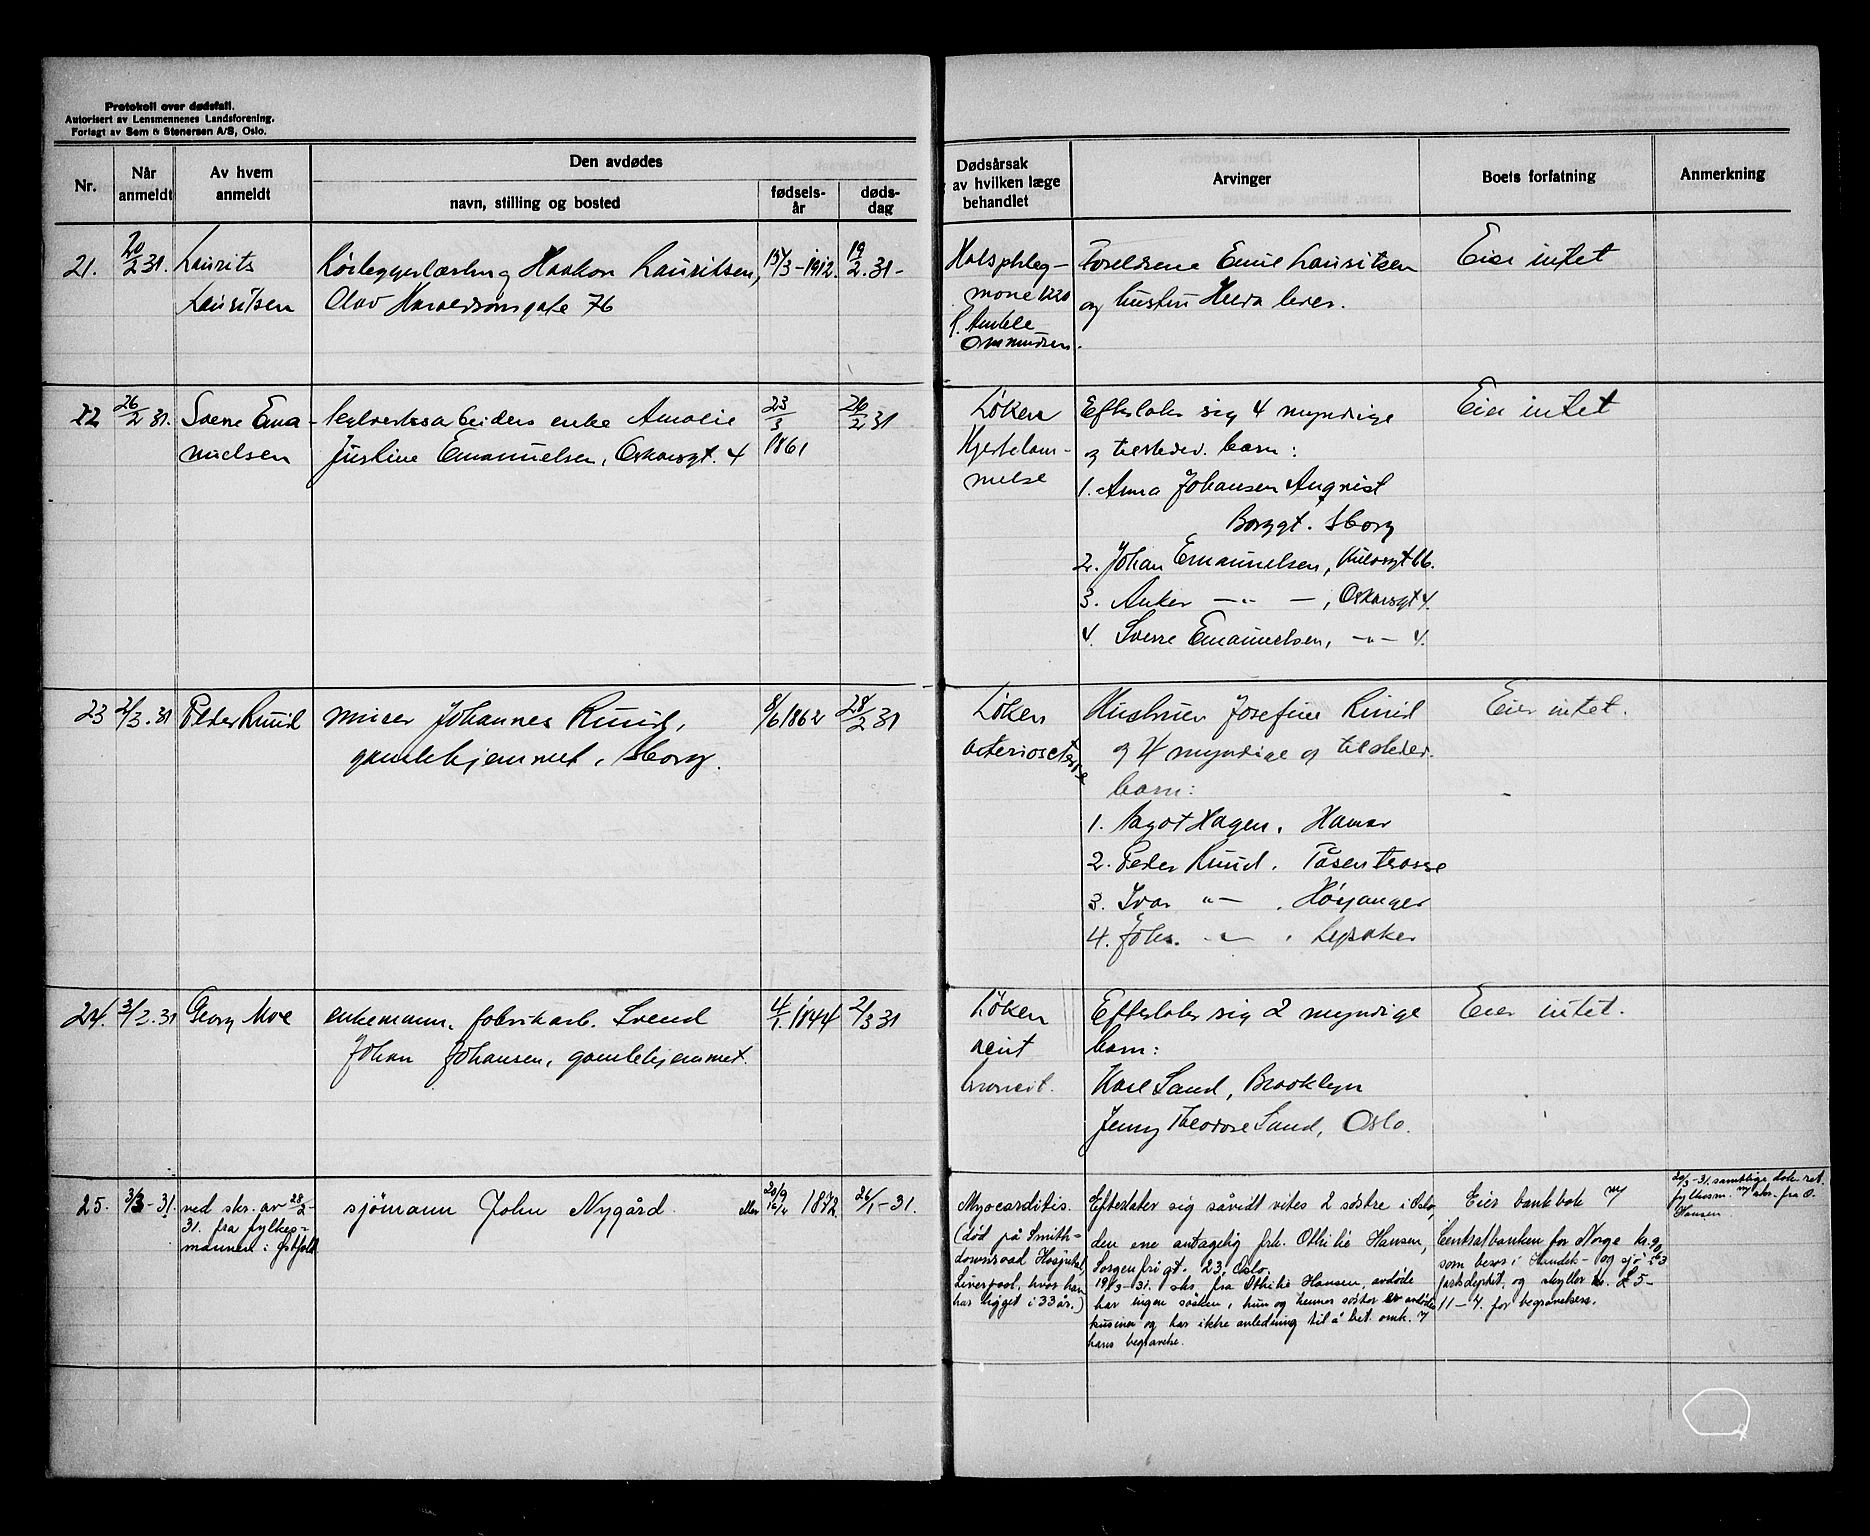 Protokoll over dødsfall.
Autorisert av Lensmennenes Landsforening.
Forlagt av Sem & Stenersen A/S, Oslo.
Nr.
Når anmeldt
Av hvem anmeldt
Den avdødes
navn, stilling og bosted
fødsels-år
døds-dag
Dødsårsak
av hvilken læge
behandlet
Arvinger
Boets forfatning
Anmerkning
21. 20/2 31. Laurits Haakon Lauritsen, 15/3-1912. 19/2.31-
Lauritsen Olav Haraldsonsgate 76
Halsphleg-
mone
Foreldrene Emil Lauritsen
og hustru lever.
Eier intet
22 26/2 31. Sverre Ema- enke Amalie 23/3 26/2 31
nuelsen Justine Emanuelsen, Oskarsgt. 4 1861
Løken
Hjertelam-
melse
Efterlater sig 4 myndige
og tilstedev. barn:
1. Anna Johansen
Borggt. Sborg
2. Johan Emanuelsen,
3. Anker -"- , Oskarsgt 4.
4. Sverre Emanuelsen, -"- 4.
Eier intet
23 2/3.31 Peder Ruud murer Johannes Ruud, 8/6 1862 28/2 31
gamlehjemmet, Sborg.
Løken
Hustruen Josefine Ruud
og 4 myndige og tilstedev.
barn:
1. Hagen, Hamar
2. Peder Ruud, Tåsen terasse
3. Ivar "- , Høyanger
4. Johs. -"- , Lysaker
Eier intet.
24. 3/3.31 Georg Moe enkemann, fabrikarb. Svend 4/1 1844 2/3 31
Johan Johansen, gamlehjemmet.
Løken
Efterlater sig 2 myndige
barn:
Karl Sand, Brooklyn
Jenny Theodore Sand, Oslo.
Eier intet.
25. 3/3-31. ved skr. av 28/2- sjømann John Nygård. 1872. 26/1-31.
31. fra fylkes-
mannen i Østfold
Myocarditis.
(død på Smith-
downroad Hospital,
Liverpool, hvor han
har ligget i 33 år.)
Efterlater sig såvidt vites 2 søstre i Oslo,
den ene antagelig frk. Othilie Hansen,
Sorgenfrigt. 23, Oslo.
19/3-31. skr. fra Othilie Hansen, avdøde
har ingen søsken, hun og hennes søster er avdødes
kusiner og har ikke anledning til å bet. omk. v/
hans begravelse.
Eier bankbok v/
Centralbanken for Norge kr. 90,63
som beror i Handels- og sjø-
fartsdeptet, og skylder £ 5-
11-4. for begravelsen.
20/3-31. samtlige dok. ret.
fylkesm. v/ skr. fra O.
Hansen.